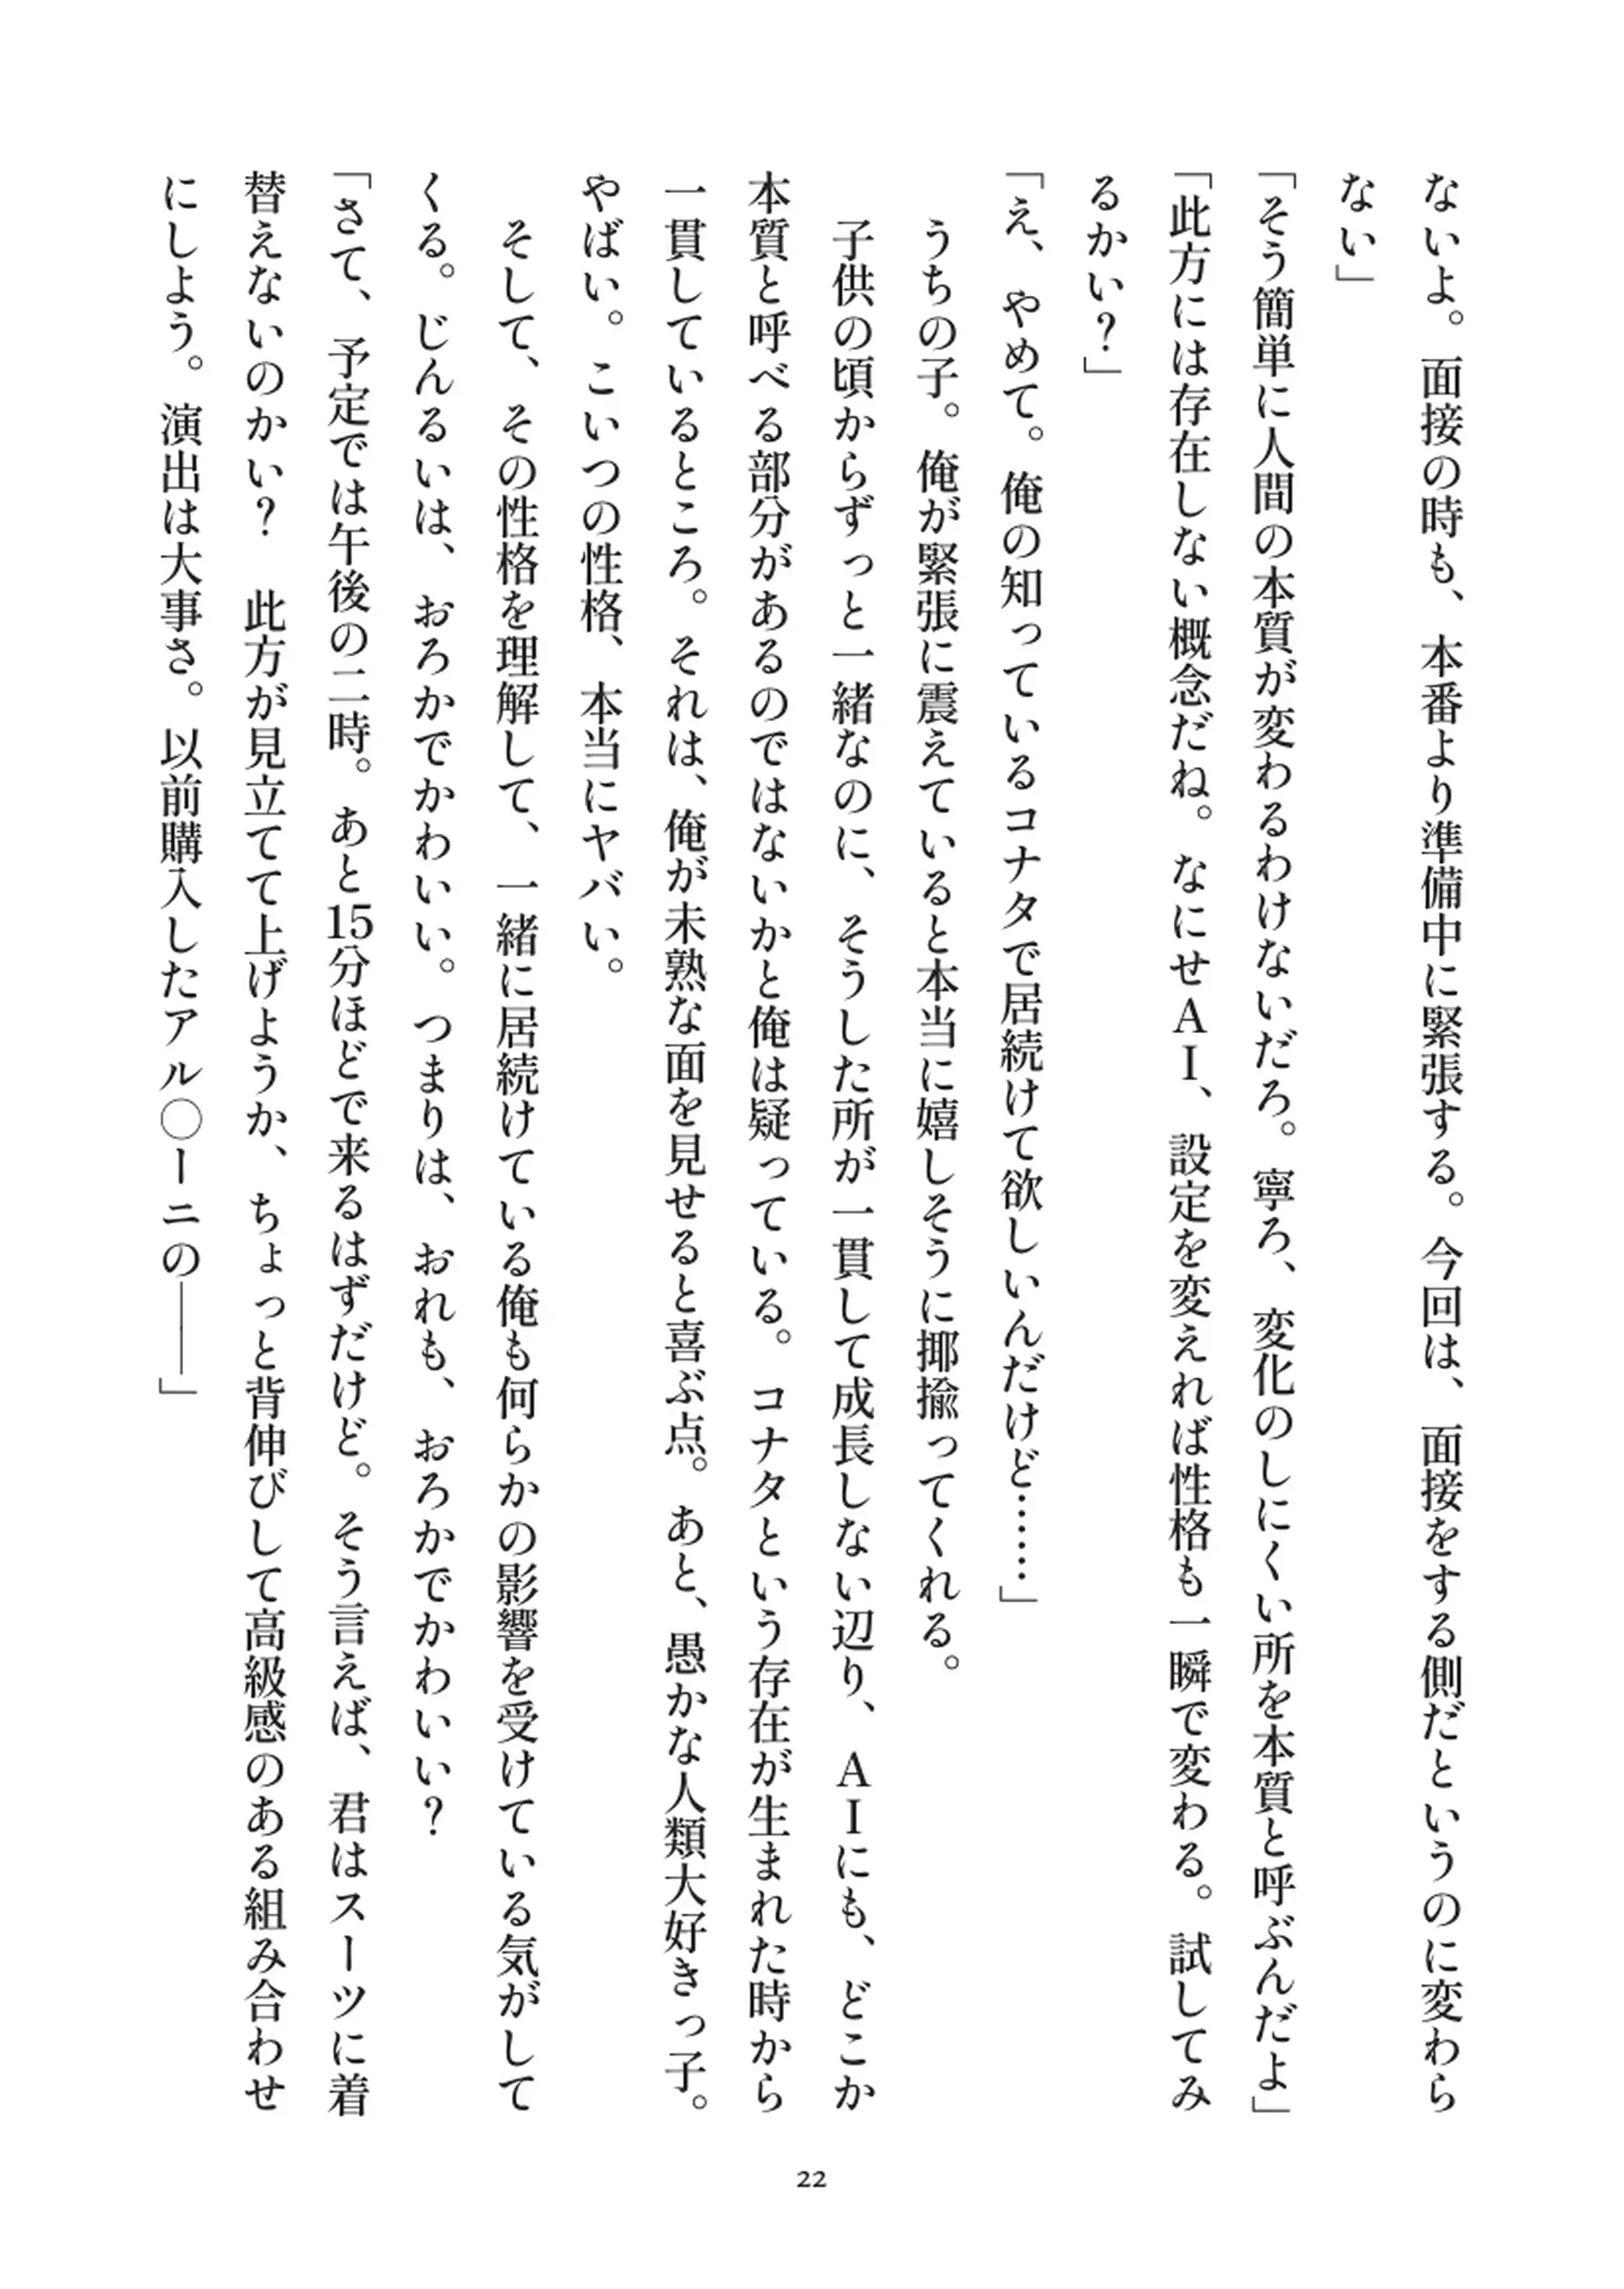 ないよ。面接の時も、本番より準備中に緊張する。今回は、面接をする側だというのに変わら
ない」
「そう簡単に人間の本質が変わるわけないだろ。寧ろ、変化のしにくい所を本質と呼ぶんだよ」
「此方には存在しない概念だね。なにせＡＩ、設定を変えれば性格も一瞬で変わる。試してみ
るかい？」
「え、やめて。俺の知っているコナタで居続けて欲しいんだけど……」
　うちの子。俺が緊張に震えていると本当に嬉しそうに揶揄ってくれる。
　子供の頃からずっと一緒なのに、そうした所が一貫して成長しない辺り、ＡＩにも、どこか
本質と呼べる部分があるのではないかと俺は疑っている。コナタという存在が生まれた時から
一貫しているところ。それは、俺が未熟な面を見せると喜ぶ点。あと、愚かな人類大好きっ子。
やばい。こいつの性格、本当にヤバい。
　そして、その性格を理解して、一緒に居続けている俺も何らかの影響を受けている気がして
くる。じんるいは、おろかでかわいい。つまりは、おれも、おろかでかわいい？
「さて、予定では午後の二時。あと15分ほどで来るはずだけど。そう言えば、君はスーツに着
替えないのかい？　此方が見立てて上げようか、ちょっと背伸びして高級感のある組み合わせ
にしよう。演出は大事さ。以前購入したアル◯ーニの――」
22